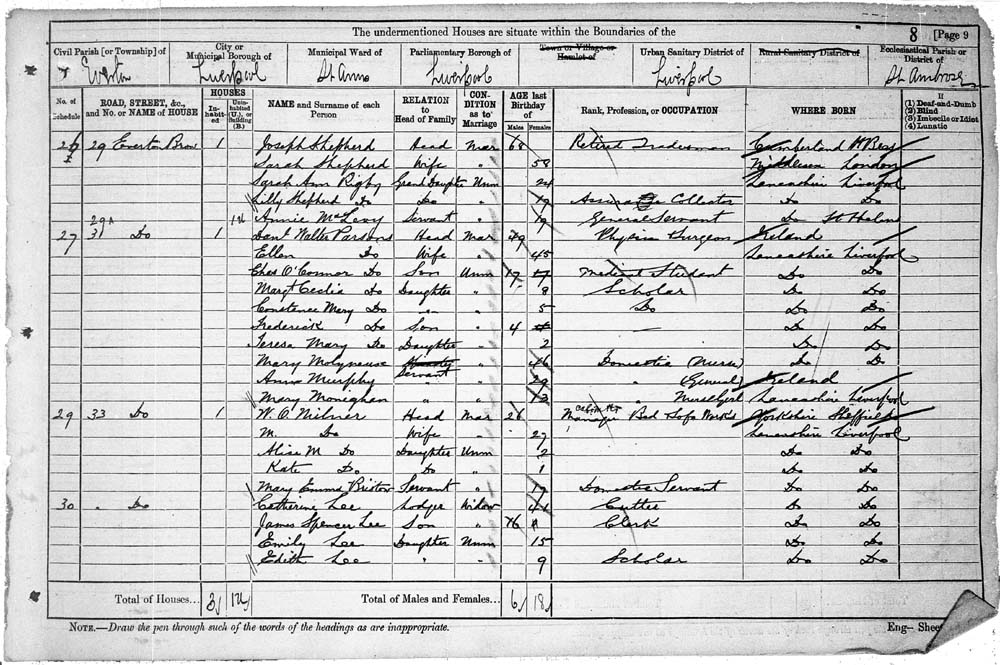 The undermentioned Houses are situate within the Boundaries of the 8 [Page 9
Civil Parish [or Township] of Everton
City or Municipal Borough of Liverpool
Municipal Ward of St Anns
Parliamentary Borough of Liverpool
Town or Village or Hamlet of
Urban Sanitary District of Liverpool
Rural Sanitary District of
Ecclesiastical Parish or District of St Ambrose
No. of Schedule
ROAD, STREET, &c., and No. or NAME of HOUSE
HOUSES In-habited Unin-habited (U.), or Building (B.)
NAME and Surname of each Person
RELATION to Head of Family
CON-DITION as to Marriage
AGE last Birthday of Males Females
Rank, Profession, or OCCUPATION
WHERE BORN
If (1) Deaf-and-Dumb (2) Blind (3) Imbecile or Idiot (4) Lunatic
26 29 Everton Brow 1 Joseph Shepherd Head Mar 68 Retired Tradesman Cumberland
Sarah Shepherd Wife " 58 Middlesex London
Sarah Ann Rigby Grand Daughter Unm 24 Lancashire Liverpool
Lilly Shepherd Do Do " 19 Collector Do Do
29A 1U Annie McLevy Servant " 19 General Servant Do St Helens
27 31 Do 1 Danl Walter Parsons Head Mar 49 Physician Surgeon Ireland
Ellen Do Wife " 45 Lancashire Liverpool
Chas O'Connor Do Son Unm 17 Medical Student Do Do
Margt Cecilia Do Daughter " 8 Scholar Do Do
Constence Mary Do " " 5 Do Do Do
Frederick Do Son " 4 — Do Do
Teresa Mary Do Daughter " 2 Do Do
Mary Molyneux Servant " 46 Domestic (Nurse) Do Do
Anna Murphy " 29 " (General) Ireland
Mary Moneghan " " 13 " Nurse Girl Lancashire Liverpool
29 33 Do 1 W. O' Milner Head Mar 26 Manager Works Yorkshire Sheffield
M. Do Wife " 27 Lancashire Liverpool
Alice M Do Daughter Unm 2 Do Do
Kate Do Do " 1 Do Do
Mary Emma Bristow Servant " 19 Domestic Servant Do Do
30 " Do Catherine Lee Lodger Widow 41 Do Do
James Spencer Lee Son " 16 Clerk Do Do
Emily Lee Daughter Unm 15 Do Do
Edith Lee " " 9 Scholar Do Do
Total of Houses... 3 1U Total of Males and Females... 6 18
NOTE.—Draw the pen through such of the words of the headings as are inappropriate. Eng— Sheet